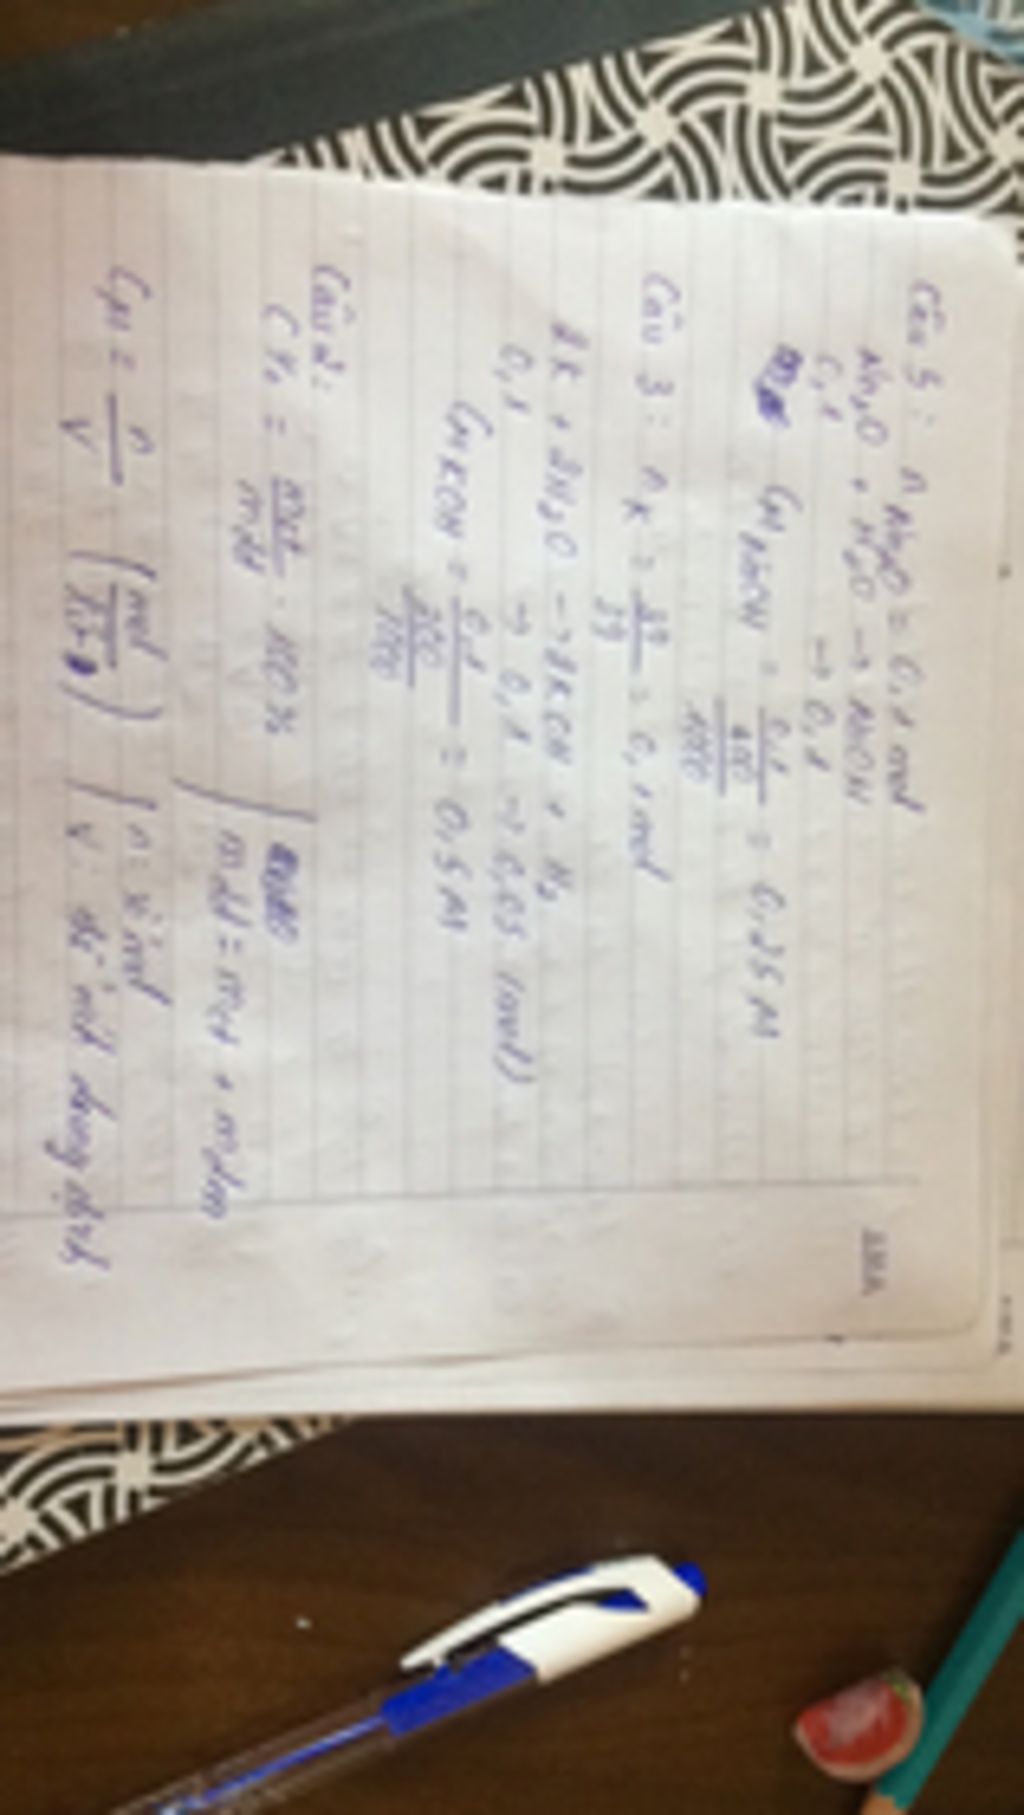 Câu 5: nNa₂O = 0,1 mol
Na₂O + H₂O → NaOH
0,1 → 0,1
CM NaOH = 0,1 / (400/1000) = 0,25 M
Câu 3: nK = 39/39 = 0,1 mol
2K + 2H₂O → 2KOH + H₂
0,1 → 0,1 → 0,05 (mol)
CM KOH = 0,1 / (200/1000) = 0,5 M
Câu 2:
C% = mct/mdd . 100%
mdd = mct + mdm
CM = n/V
n: số mol
V: thể tích dung dịch